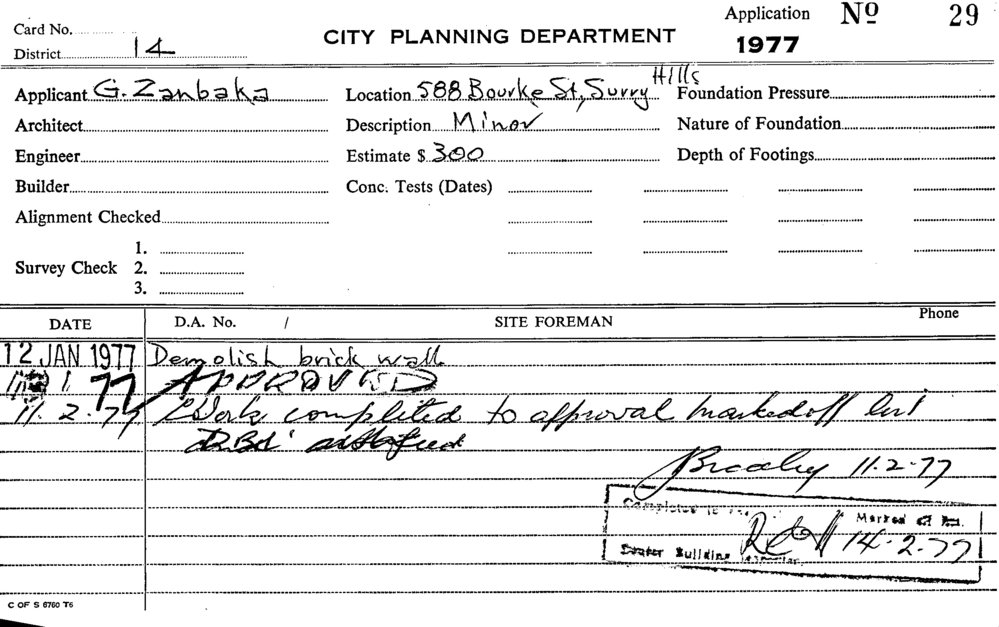 Card No.
District 14
CITY PLANNING DEPARTMENT
Application Nº 29
1977
Applicant G. Zanbaka
Location 588 Bourke St, Surry Hills
Foundation Pressure
Architect
Description Minor
Nature of Foundation
Engineer
Estimate $ 300
Depth of Footings
Builder
Conc. Tests (Dates)
Alignment Checked
Survey Check 1.
2.
3.
DATE D.A. No. / SITE FOREMAN Phone
12 JAN 1977 Demolish brick wall
1. 77 APPROVED
11. 2. 77 Work completed to approval marked off list
11.2.77
Completed Marked
14.2.77
Senior Building Inspector
C OF S 6760 T6